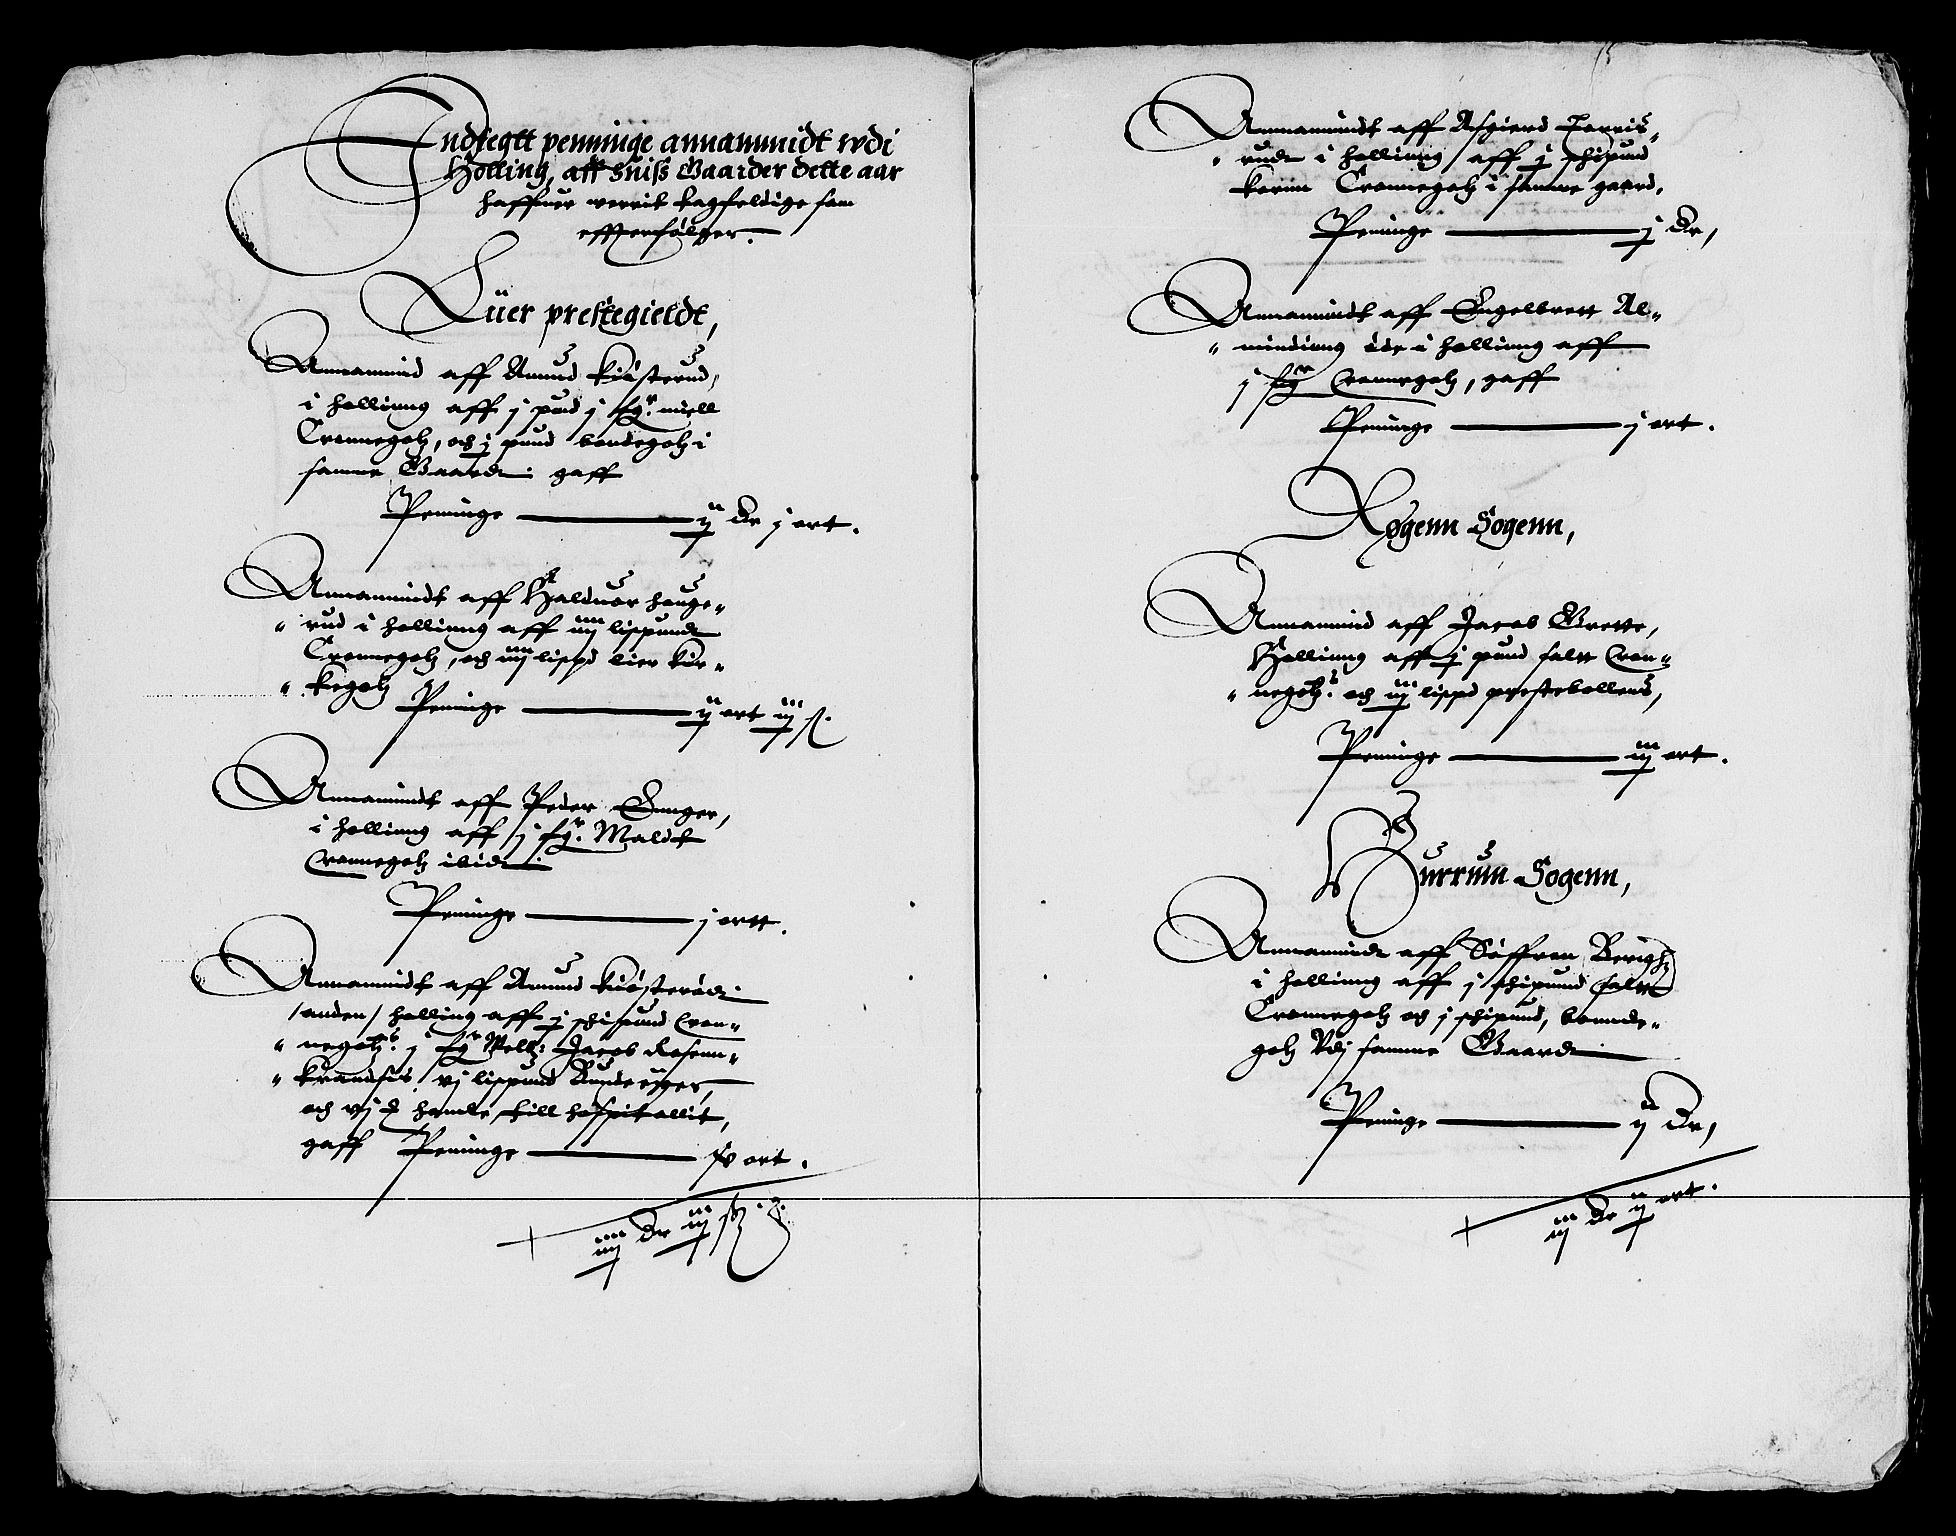 Indfegtt penninge annammidt wdi
Holling, aff huiss Gaarder dette aar
haffuer werrit bagfeldige som
effterfølger.
Lüer prestegieldt,
Annammid aff Amund Kiøsterud,
i holling aff j pund j fg.r miell
Cronnegotz, och j pund bondegotz i
samme Gaard: gaff
Peninge — ij Dr j ort.
Annammidt aff Halduor hauge-
rud i holling aff iiij lispundt
Cronnegotz, och iiij lispd lier kir-
kegotz
Peninge — ij ort iij s.
Annammidt aff Peder Enger,
i holling aff j fg.r Maldt
Cronnegotz ibid:
Peninge — j ortt.
Annammidt aff Amund Kiøsterød
/anden/ holling aff j schipund Cron-
negotz. j fg.r Mell: Jacob Rosenn-
krandsis vj lispund
och vj hamle till hospitallit,
gaff Peninge — v ort.
iiij Dr iij
Annammidt aff Asgierd Torris-
rud i holling aff j schipund
korin Cronnegotz i samme gaard,
Peninge — j Dr,
Annammidt aff Engelbrett Al-
minding i holling aff
j fg.r Cronnegotz, gaff
Peninge — j ort.
Røgenn Sogenn,
Annammid aff Jacob Grette,
Holling aff j pund salt Cron-
negotz. och iij lispd prestebollens,
Peninge — iij ort.
Hurrum Sogenn,
Annammidt aff Søffren Bergh
i holling aff j schipund salt
Cronnegotz och j schipund, bonnde-
gotz Vdj samme Gaard
Peninge — ij Dr,
iij Dr ij ort.